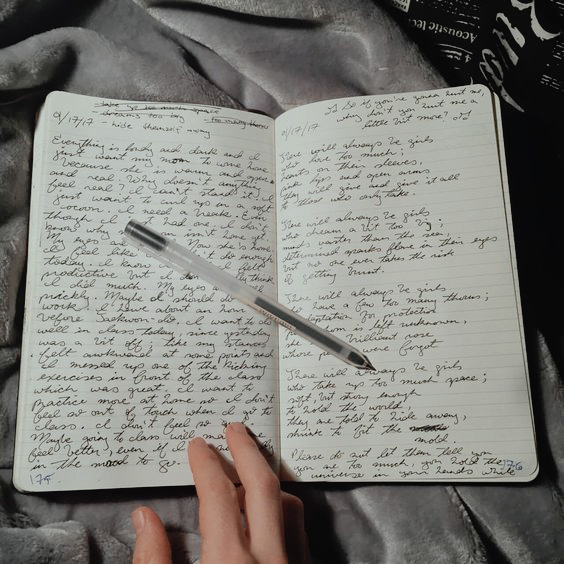 take up too much space
dreams too big
too many thorns
9/17/17 - hide themself away
Everything is foggy and dark and I
just want my mom to come home
because she is warm and
and real. Why doesn't anything
feel real? I can't stand it. I
just want to curl up in a soft
cocoon. I need a break. Even
though I had one. I don't
know why mom isn't home yet.
My eyes are Now she's home.
I feel like I didn't do enough
today. I know I felt
productive but I don't think
I did much. My eyes are
prickly. Maybe I should do
work. I have about an hour
before Taekwon-do. I want to do
well in class today, since yesterday
was a bit off; like my stances
felt awkward at some points and
I messed up one of the kicking
exercises in front of the class
which was great. I want to
practice more at home so I don't
feel so out of touch when I go to
class. I don't feel so
Maybe going to class will make me
feel better, even if I
in the mood to go.
175
So if you're gonna hurt me,
why don't you hurt me a
little bit more?
9/17/17
There will always be girls
who love too much;
hearts on their sleeves,
pink lips and open arms
they will give and give it all
to those who only take.
There will always be girls
who dream a bit too big.
minds vaster than the sea,
determined sparks flame in their eyes
but no one ever takes the risk
of getting burnt.
There will always be girls
who have a few too many thorns;
adaptation for protection
from whom is left unknown,
brilliant rose
whose petals were forgot
There will always be girls
who take up too much space;
soft, but strong enough
to hold the world,
they are told to hide away,
shrink to fit the
mold.
Please do not let them tell you
you are too much, you hold the
universe in your hands while
176
Acoustic